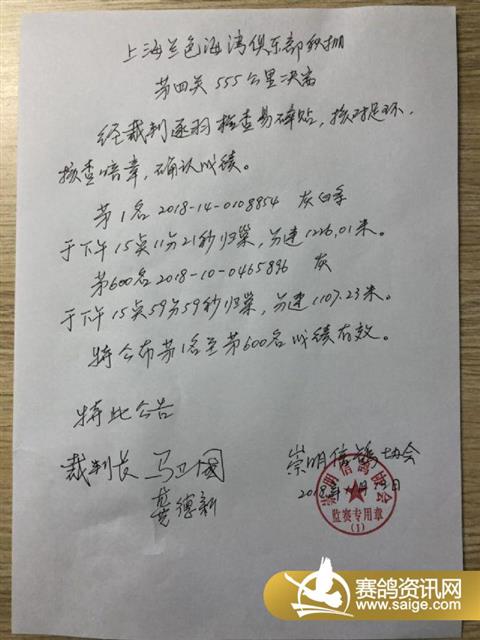 上海兰色海湾俱乐部秋棚
第四关 555公里决赛
经裁判逐羽检查易碎贴，核对足环，
核查暗章，确认成绩。
第1名 2018-14-0108854 灰白条
于下午15点11分21秒归巢，分速1226.01米。
第600名 2018-10-0465896 灰
于下午15点59分59秒归巢，分速1107.23米。
特公布第1名至第600名成绩有效。
特此公告
裁判长 马卫国
龚德新
崇明信鸽协会
2018年 月 日
崇明信鸽协会
监赛专用章
(1)
赛鸽资讯网
www.saige.com